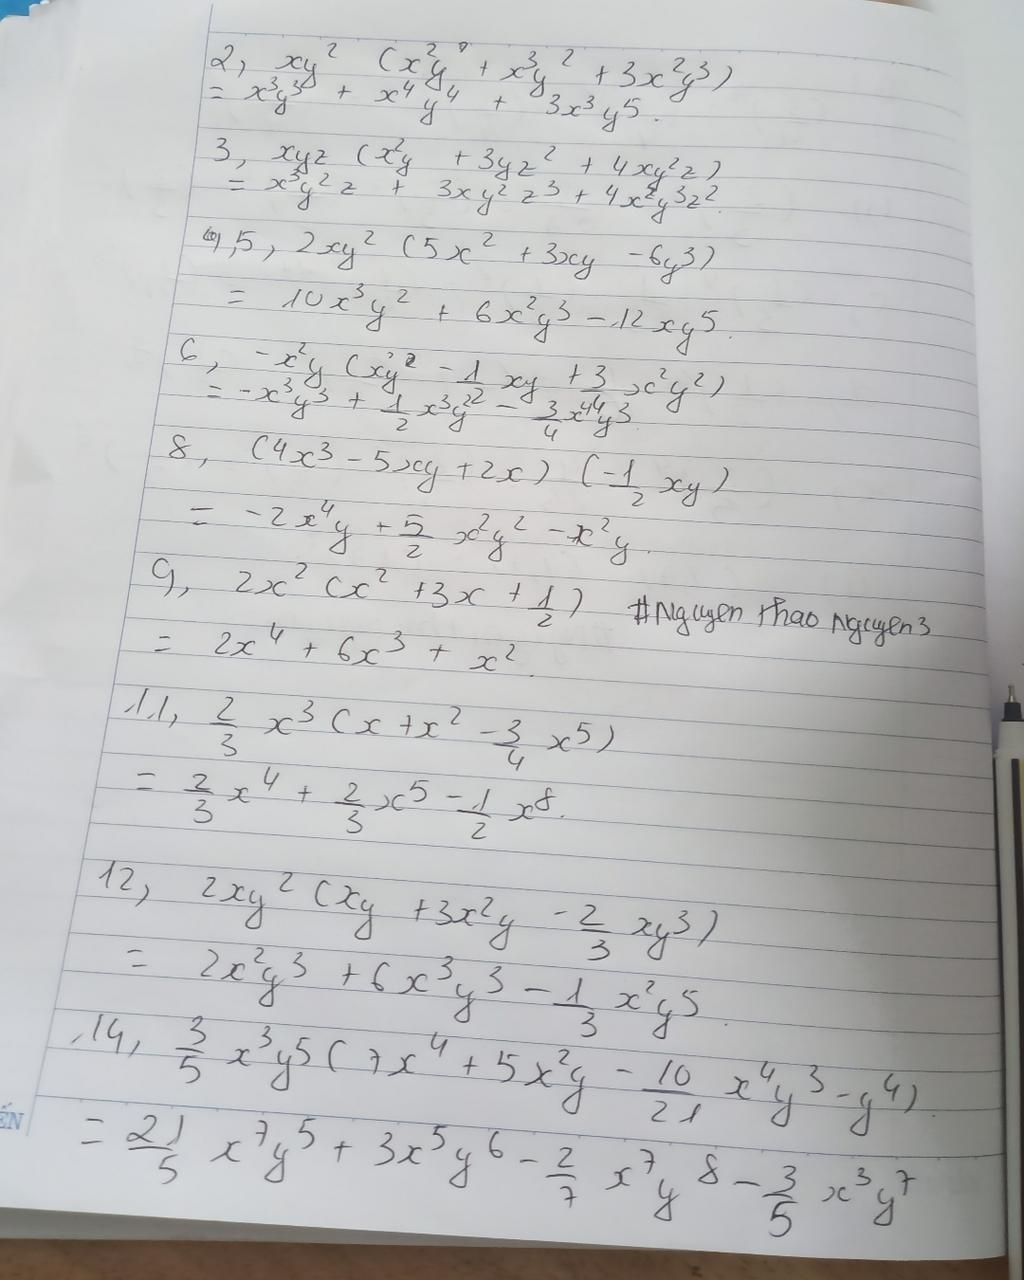 2, xy² (x²y + x³y² + 3x²y³)
= x³y³ + x⁴y⁴ + 3x³y⁵.
3, xyz (x²y + 3yz² + 4xy²z)
= x³y²z + 3xy²z³ + 4x²y³z².
4,5, 2xy² (5x² + 3xy - 6y³)
= 10x³y² + 6x²y³ - 12xy⁵.
6, -x²y (xy² - 1/2 xy + 3/4 x²y²)
= -x³y³ + 1/2 x³y² - 3/4 x⁴y³
8, (4x³ - 5xy + 2x) (-1/2 xy)
= -2x⁴y + 5/2 x²y² - x²y.
9, 2x² (x² + 3x + 1/2) #Nguyen thao Nguyen3
= 2x⁴ + 6x³ + x².
11, 2/3 x³ (x + x² - 3/4 x⁵)
= 2/3 x⁴ + 2/3 x⁵ - 1/2 x⁸.
12, 2xy² (xy + 3x²y - 2/3 xy³)
= 2x²y³ + 6x³y³ - 1/3 x²y⁵.
14, 3/5 x³y⁵ (7x⁴ + 5x²y - 10/21 x⁴y³ - y⁴)
= 21/5 x⁷y⁵ + 3x⁵y⁶ - 2/7 x⁷y⁸ - 3/5 x³y⁷